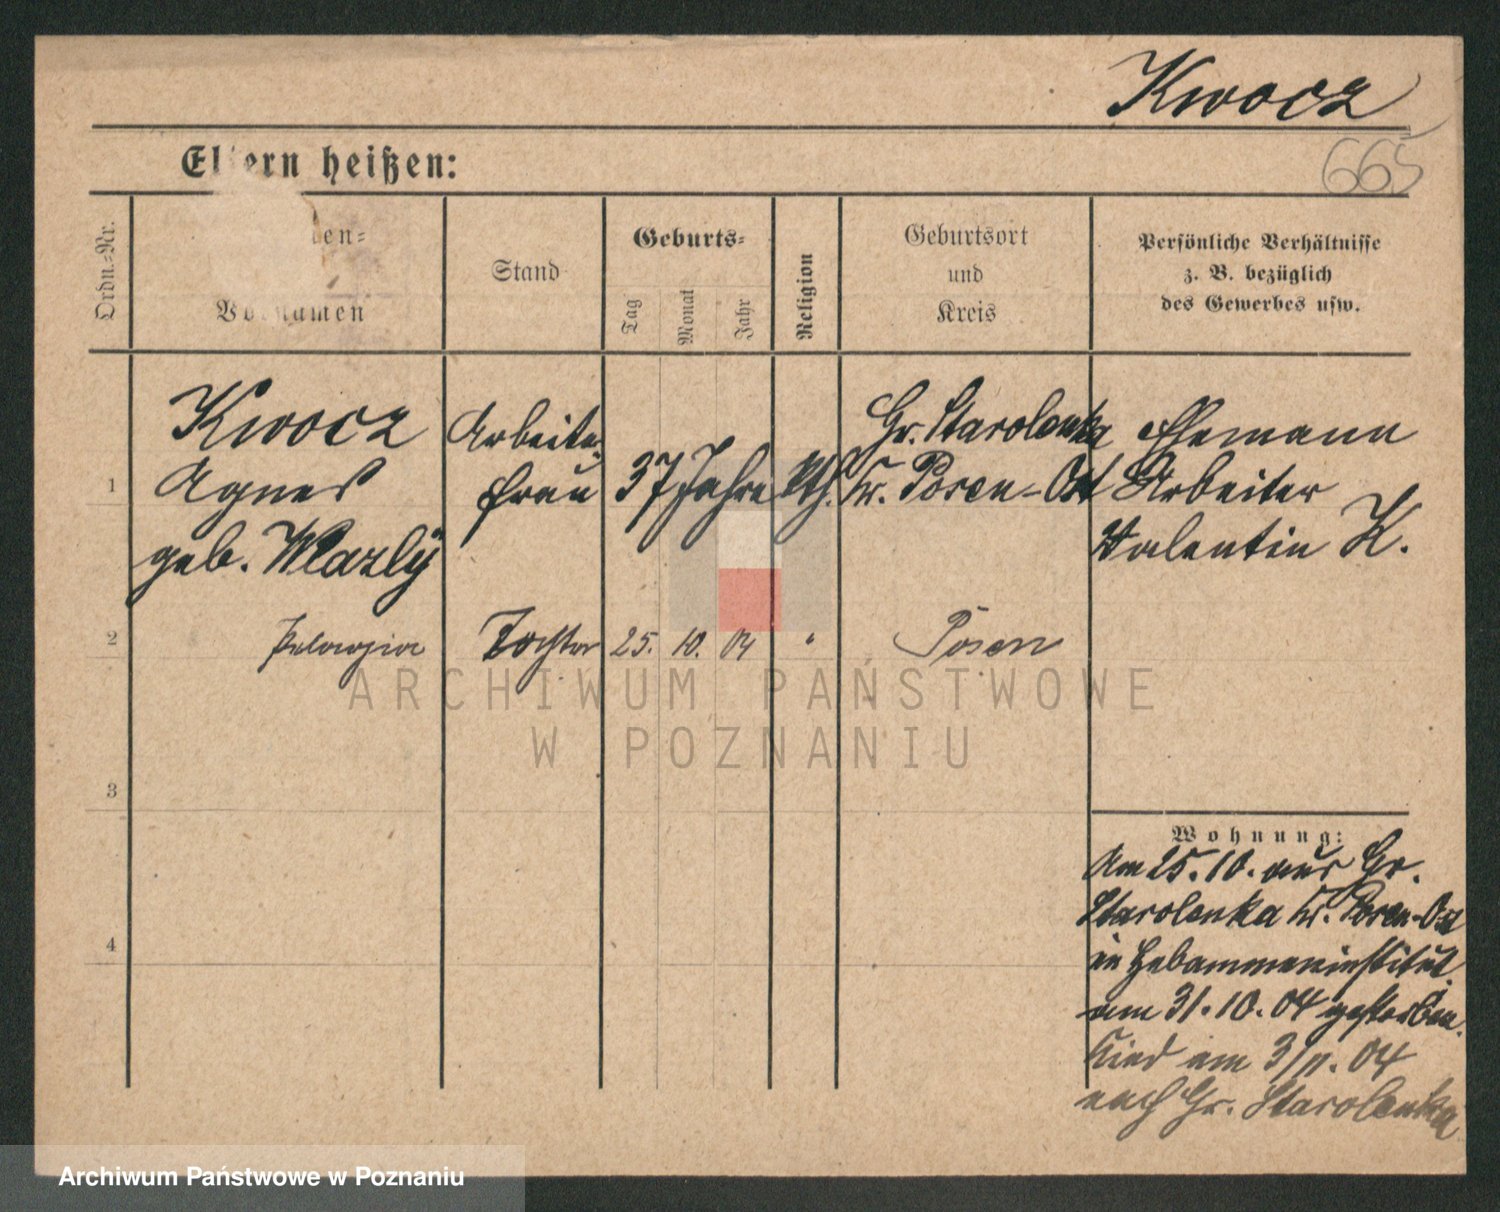 Kwocz
665
Eltern heißen:
Ordn.=Nr.
en=
Vornamen
Stand
Geburts=
Tag
Monat
Jahr
Religion
Geburtsort
und
Kreis
Persönliche Verhältnisse
z. B. bezüglich
des Gewerbes usw.
1
Kwocz
Agnes
geb.
Arbeiter
frau
37 Jahre
kth.
Gr. Starolenka
Kr. Posen-Ost
Ehemann
Arbeiter
Valentin K.
2
Pelagia
Tochter
25.
10.
04
"
Posen
ARCHIWUM PAŃSTWOWE
W POZNANIU
3
4
Wohnung:
Am 25.10. aus Gr.
Starolenka Kr. Posen-Ost
in Hebammeninstitut
am 31.10.04 gestorben.
Kind am 3/11.04
nach Gr. Starolenka
Archiwum Państwowe w Poznaniu